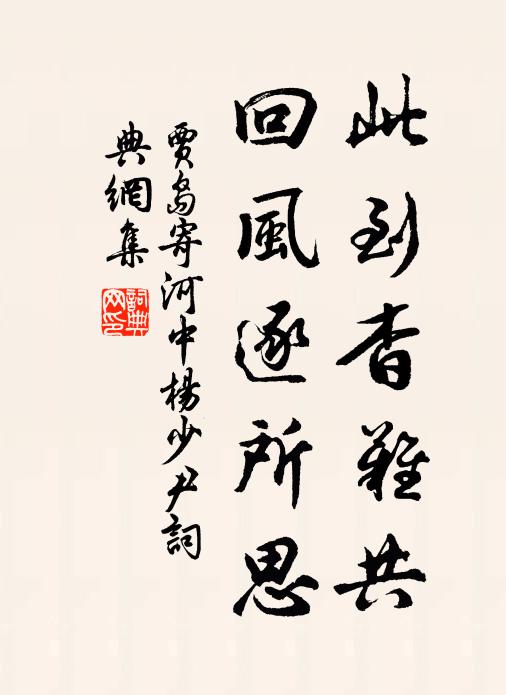 此到杳難共
回風逐所思
賈島寄河中楊少尹詞
典網集
詞典
网印